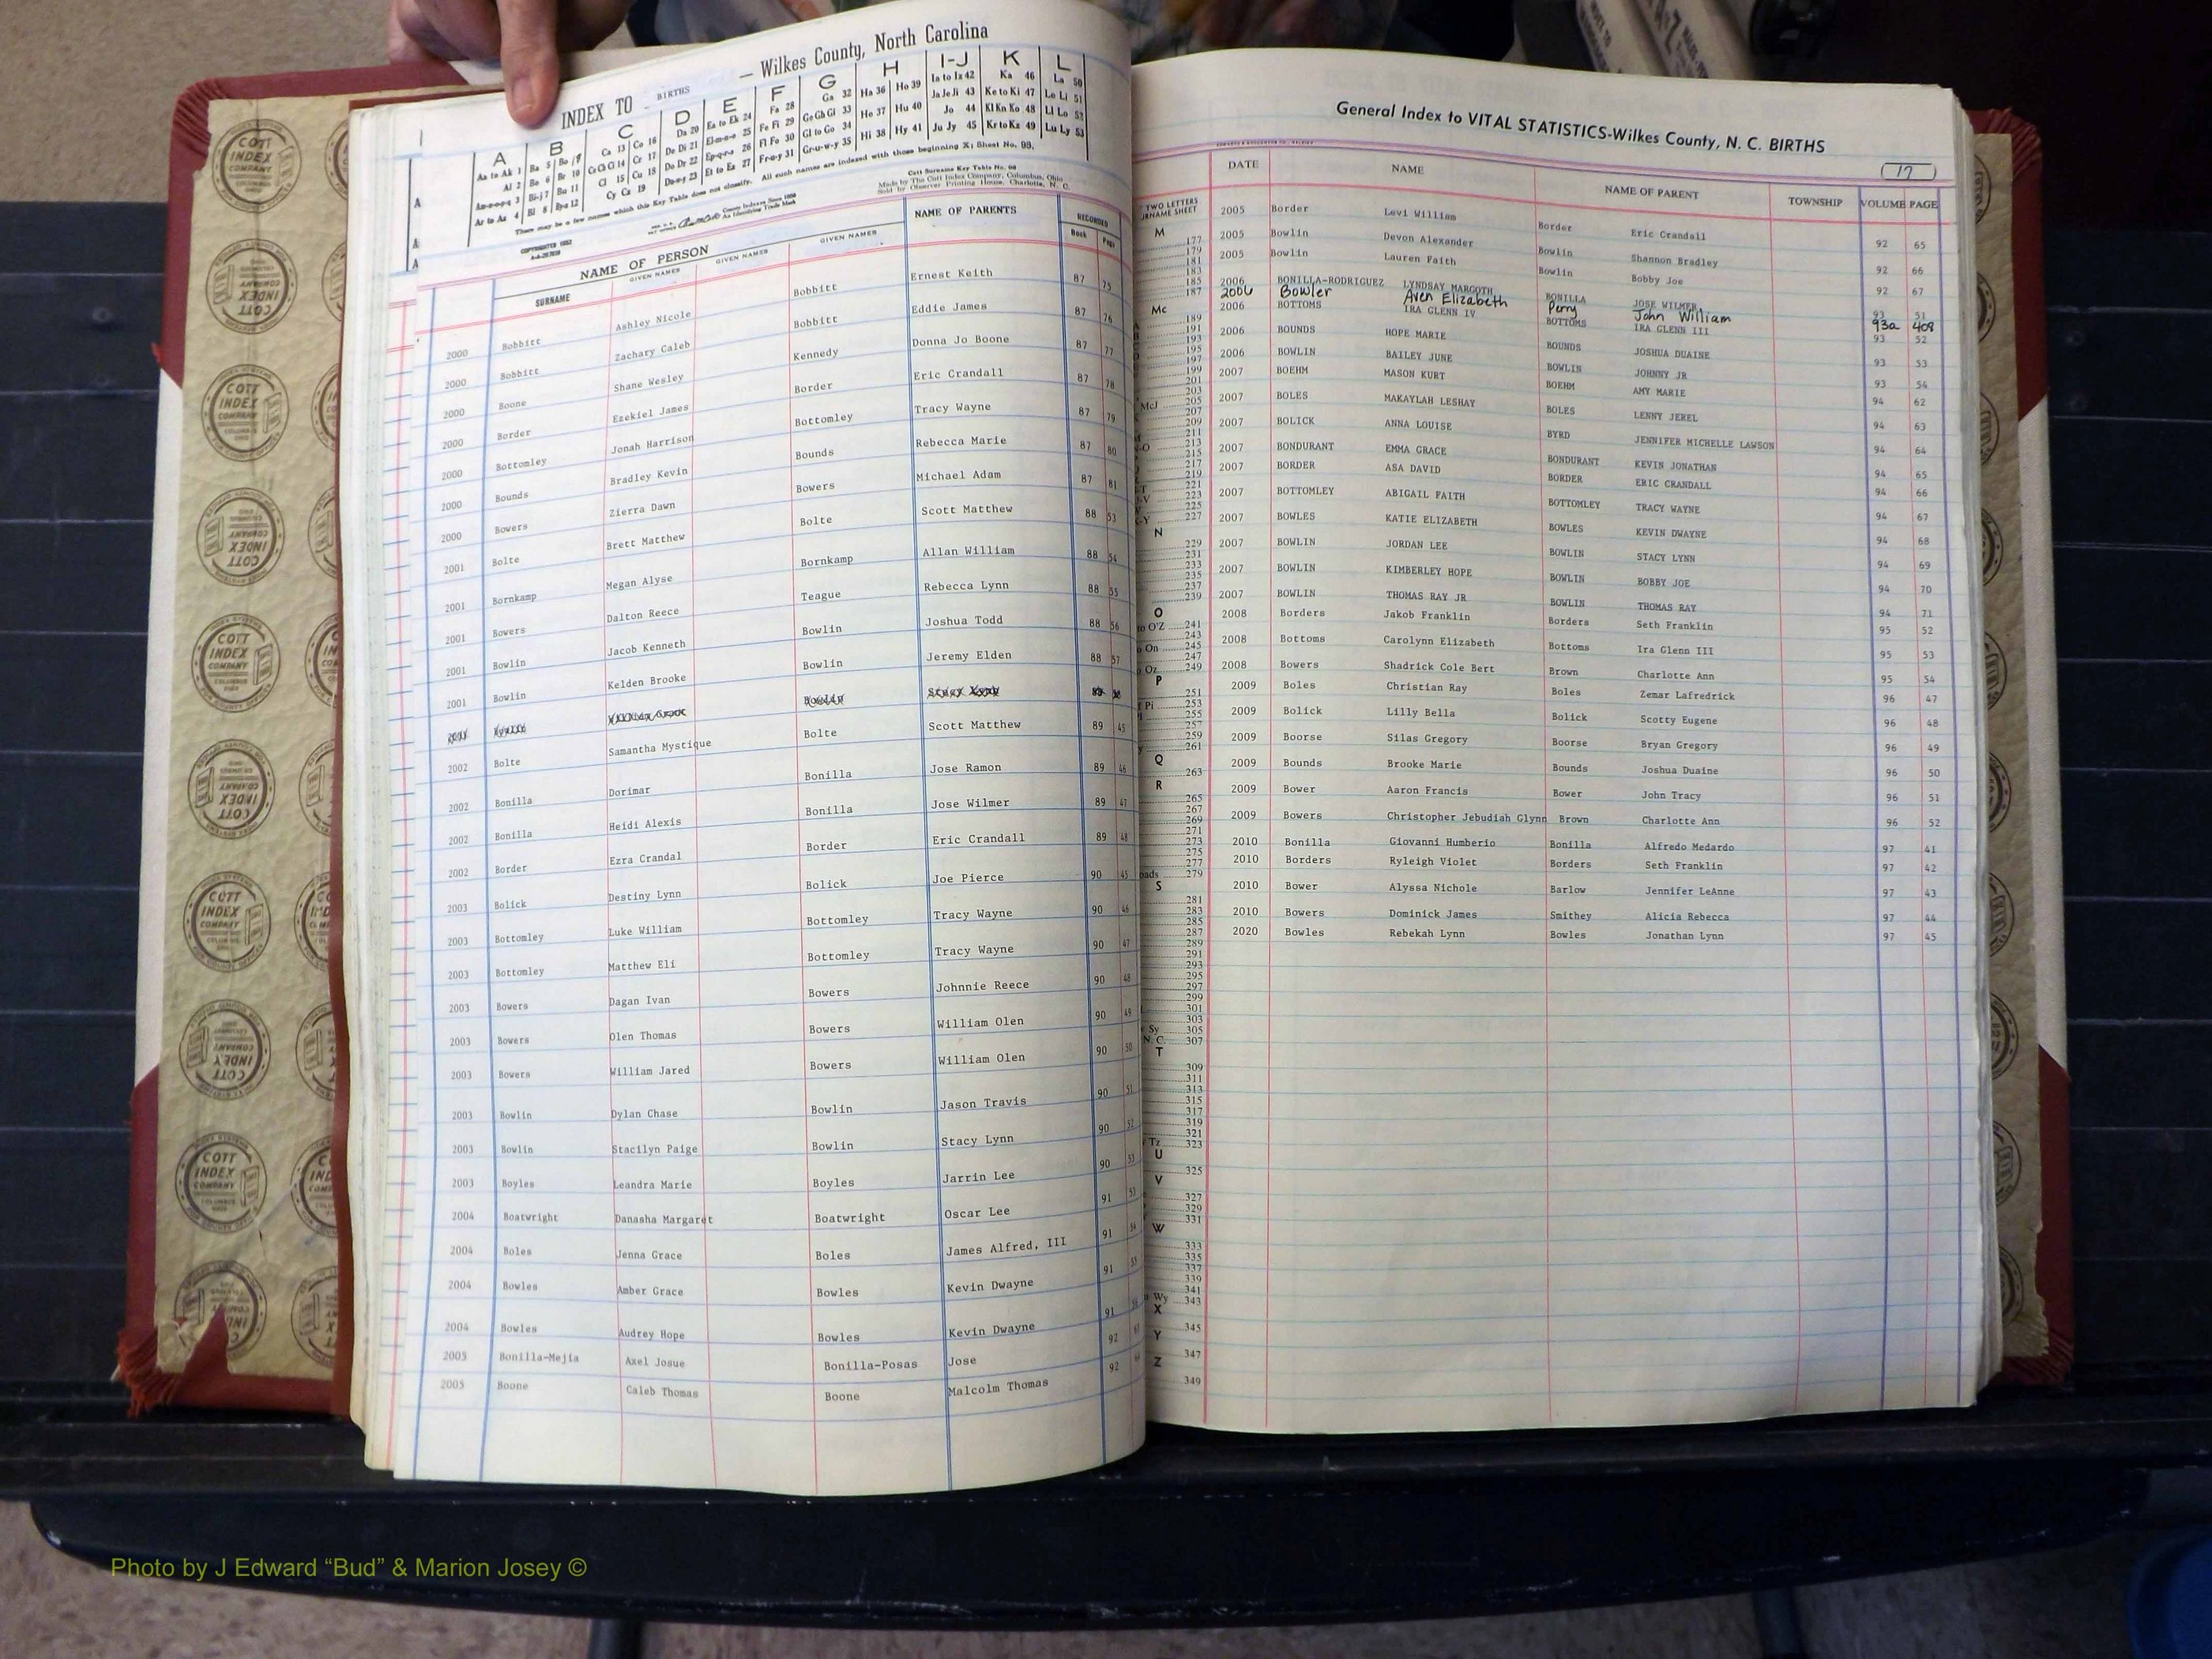 INDEX TO BIRTHS — Wilkes County, North Carolina
A B C D E F G H I-J K L
Aa to Ak 1 Ba 5 Bo 9 Ca 13 Co 16 Da 20 Ea to Ek 24 Fa 28 Ga 32 Ha 36 Ho 39 Ia to Iz 42 Ka 46 La 50
Al 2 Be 6 Br 10 Ce Ch Ci 14 Cr 17 De Di 21 El-m-n-o 25 Fe Fi 29 Ge Gh Gi 33 He 37 Hu 40 Ja Je Ji 43 Ke to Ki 47 Le Li 51
Am-n-o-p-q 3 Bi-j 7 Bu 11 Cl 15 Cu 18 Do Dr 22 Ep-q-r-s 26 Fl Fo 30 Gl to Go 34 Hi 38 Hy 41 Jo 44 Kl Kn Ko 48 Ll Lo 52
Ar to Az 4 Bl 8 Bya 12 Cy Cz 19 Du-w-y 23 Et to Ez 27 Fr-u-y 31 Gr-u-w-y 35 Ju Jy 45 Kr to Kz 49 Lu Ly 53
There may be a few names which this Key Table does not classify. All such names are indexed with those beginning X; Sheet No. 98.
COPYRIGHTED 1952
County Indexes Since 1888
An Identifying Trade Mark
Cott Surname Key Table No. 98
Made by The Cott Index Company, Columbus, Ohio
Sold by Observer Printing House, Charlotte, N. C.
NAME OF PERSON NAME OF PARENTS RECORDED
SURNAME GIVEN NAMES GIVEN NAMES GIVEN NAMES Book Page
2000 Bobbitt Ashley Nicole Bobbitt Ernest Keith 87 75
2000 Bobbitt Zachary Caleb Bobbitt Eddie James 87 76
2000 Boone Shane Wesley Kennedy Donna Jo Boone 87 77
2000 Border Ezekiel James Border Eric Crandall 87 78
2000 Bottomley Jonah Harrison Bottomley Tracy Wayne 87 79
2000 Bounds Bradley Kevin Bounds Rebecca Marie 87 80
2000 Bowers Zierra Dawn Bowers Michael Adam 87 81
2001 Bolte Brett Matthew Bolte Scott Matthew 88 53
2001 Bornkamp Megan Alyse Bornkamp Allan William 88 54
2001 Bowers Dalton Reece Teague Rebecca Lynn 88 55
2001 Bowlin Jacob Kenneth Bowlin Joshua Todd 88 56
2001 Bowlin Kelden Brooke Bowlin Jeremy Elden 88 57
2002 Bolte Samantha Mystique Bolte Scott Matthew 89 45
2002 Bonilla Dorimar Bonilla Jose Ramon 89 46
2002 Bonilla Heidi Alexis Bonilla Jose Wilmer 89 47
2002 Border Ezra Crandal Border Eric Crandall 89 48
2003 Bolick Destiny Lynn Bolick Joe Pierce 90 45
2003 Bottomley Luke William Bottomley Tracy Wayne 90 46
2003 Bottomley Matthew Eli Bottomley Tracy Wayne 90 47
2003 Bowers Dagan Ivan Bowers Johnnie Reece 90 48
2003 Bowers Olen Thomas Bowers William Olen 90 49
2003 Bowers William Jared Bowers William Olen 90 50
2003 Bowlin Dylan Chase Bowlin Jason Travis 90 51
2003 Bowlin Stacilyn Paige Bowlin Stacy Lynn 90 52
2003 Boyles Leandra Marie Boyles Jarrin Lee 90 53
2004 Boatwright Danasha Margaret Boatwright Oscar Lee 91 53
2004 Boles Jenna Grace Boles James Alfred, III 91 54
2004 Bowles Amber Grace Bowles Kevin Dwayne 91 55
2004 Bowles Audrey Hope Bowles Kevin Dwayne 91
2005 Bonilla-Mejia Axel Josue Bonilla-Posas Jose 92
2005 Boone Caleb Thomas Boone Malcolm Thomas 92
General Index to VITAL STATISTICS-Wilkes County, N. C. BIRTHS
17
DATE NAME NAME OF PARENT TOWNSHIP VOLUME PAGE
2005 Border Levi William Border Eric Crandall 92 65
2005 Bowlin Devon Alexander Bowlin Shannon Bradley 92 66
2005 Bowlin Lauren Faith Bowlin Bobby Joe 92 67
2006 BONILLA-RODRIGUEZ LYNDSAY MARGOTH BONILLA JOSE WILMER 93 51
2006 Bowler Aven Elizabeth Perry John William 93a 408
2006 BOTTOMS IRA GLENN IV BOTTOMS IRA GLENN III 93 52
2006 BOUNDS HOPE MARIE BOUNDS JOSHUA DUAINE 93 53
2006 BOWLIN BAILEY JUNE BOWLIN JOHNNY JR 93 54
2007 BOEHM MASON KURT BOEHM AMY MARIE 94 62
2007 BOLES MAKAYLAH LESHAY BOLES LENNY JEREL 94 63
2007 BOLICK ANNA LOUISE BYRD JENNIFER MICHELLE LAWSON 94 64
2007 BONDURANT EMMA GRACE BONDURANT KEVIN JONATHAN 94 65
2007 BORDER ASA DAVID BORDER ERIC CRANDALL 94 66
2007 BOTTOMLEY ABIGAIL FAITH BOTTOMLEY TRACY WAYNE 94 67
2007 BOWLES KATIE ELIZABETH BOWLES KEVIN DWAYNE 94 68
2007 BOWLIN JORDAN LEE BOWLIN STACY LYNN 94 69
2007 BOWLIN KIMBERLEY HOPE BOWLIN BOBBY JOE 94 70
2007 BOWLIN THOMAS RAY JR BOWLIN THOMAS RAY 94 71
2008 Borders Jakob Franklin Borders Seth Franklin 95 52
2008 Bottoms Carolynn Elizabeth Bottoms Ira Glenn III 95 53
2008 Bowers Shadrick Cole Bert Brown Charlotte Ann 95 54
2009 Boles Christian Ray Boles Zemar Lafredrick 96 47
2009 Bolick Lilly Bella Bolick Scotty Eugene 96 48
2009 Boorse Silas Gregory Boorse Bryan Gregory 96 49
2009 Bounds Brooke Marie Bounds Joshua Duaine 96 50
2009 Bower Aaron Francis Bower John Tracy 96 51
2009 Bowers Christopher Jebudiah Glynn Brown Charlotte Ann 96 52
2010 Bonilla Giovanni Humberio Bonilla Alfredo Medardo 97 41
2010 Borders Ryleigh Violet Borders Seth Franklin 97 42
2010 Bower Alyssa Nichole Barlow Jennifer LeAnne 97 43
2010 Bowers Dominick James Smithey Alicia Rebecca 97 44
2020 Bowles Rebekah Lynn Bowles Jonathan Lynn 97 45
COTT INDEX COMPANY
Photo by J Edward “Bud” & Marion Josey ©